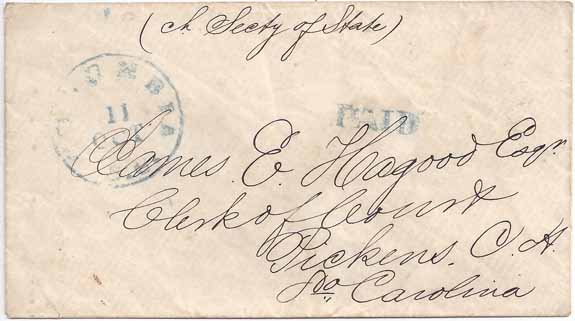 (A Secty of State)
COLUMBIA
11
OCT
PAID
James E. Hagood Esqr
Clerk of Court
Pickens. C. H.
So Carolina